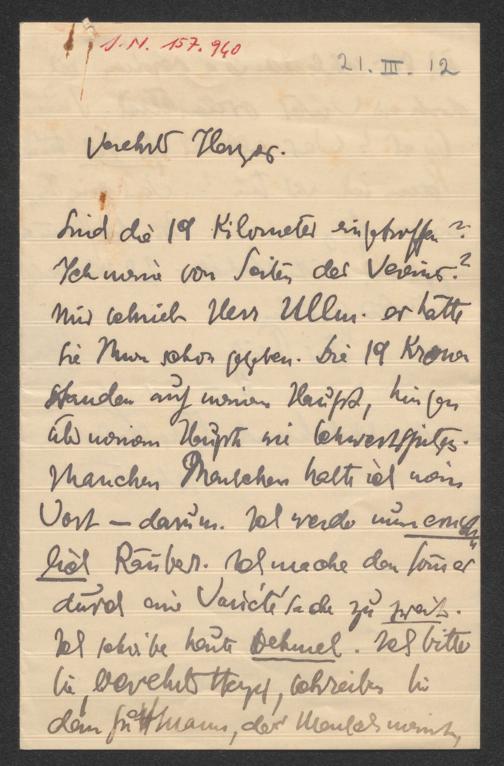 J.N. 157.940
21. III. 12
Verehrter Herzog.
Sind die 19 Kilometer eingetroffen?
Ich meine von Seiten des Vereins?
Mir schrieb Herr Ullm. er hätte
sie Ihnen schon gegeben. Die 19 Kronen
standen auf meinem Haupt, hingen
über meinem Haupte wie Schwertspitzen.
Manchen Menschen halte ich mein
Wort – darum. Ich werde nun
lich Räuber. Ich mache den
durch eine Varietésache zu zweit.
Ich schreibe heute Dehmel. Ich bitte
Sie, verehrter Herzog, schreiben Sie
dem Guttmann, der